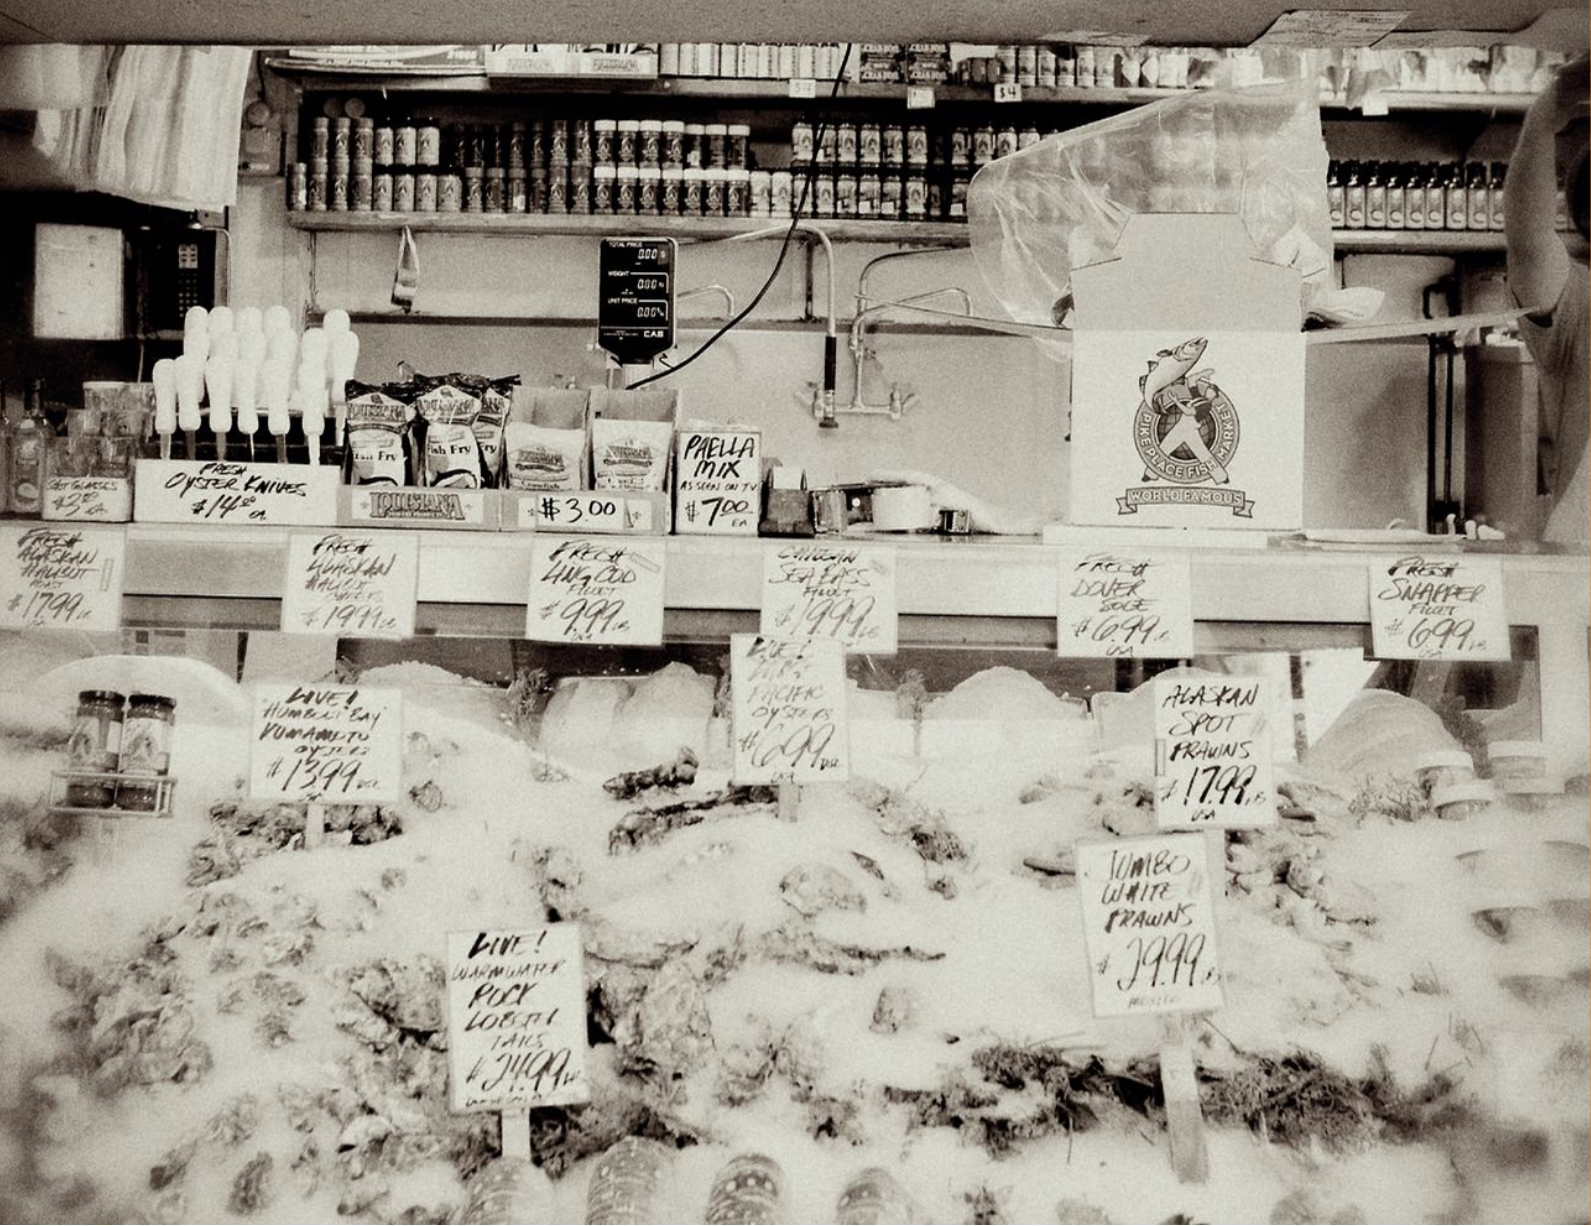 $4
$4
TOTAL PRICE
0.00 $
WEIGHT
0.00
UNIT PRICE
0.00
CAS
PIKE PLACE FISH MARKET
WORLD FAMOUS
SHOT GLASSES
EA.
FRESH
OYSTER KNIVES
EA.
LOUISIANA
Fish Fry
LOUISIANA
Fish Fry
LOUISIANA
$3.00
PAELLA
MIX
AS SEEN ON TV
$7.00
EA
FRESH
ALASKAN
HALIBUT
ROAST
$17.99 LB
FRESH
ALASKAN
HALIBUT
CHEEKS
$19.99 LB
FRESH
LING COD
FILLET
$9.99 LB
USA
CHILEAN
SEA BASS
FILLET
$19.99 LB
FRESH
DOVER
SOLE
$6.99 LB
USA
FRESH
SNAPPER
FILLET
$6.99 LB
USA
LIVE!
HUMBOLT BAY
KUMAMOTO
OYSTERS
$13.99 DOZ.
LIVE!
PACIFIC
OYSTERS
$6.99 DOZ.
USA
ALASKAN
SPOT
PRAWNS
$17.99 LB
USA
JUMBO
WHITE
PRAWNS
$29.99 LB
MEXICO
LIVE!
WARMWATER
ROCK
LOBSTER
TAILS
$24.99 LB